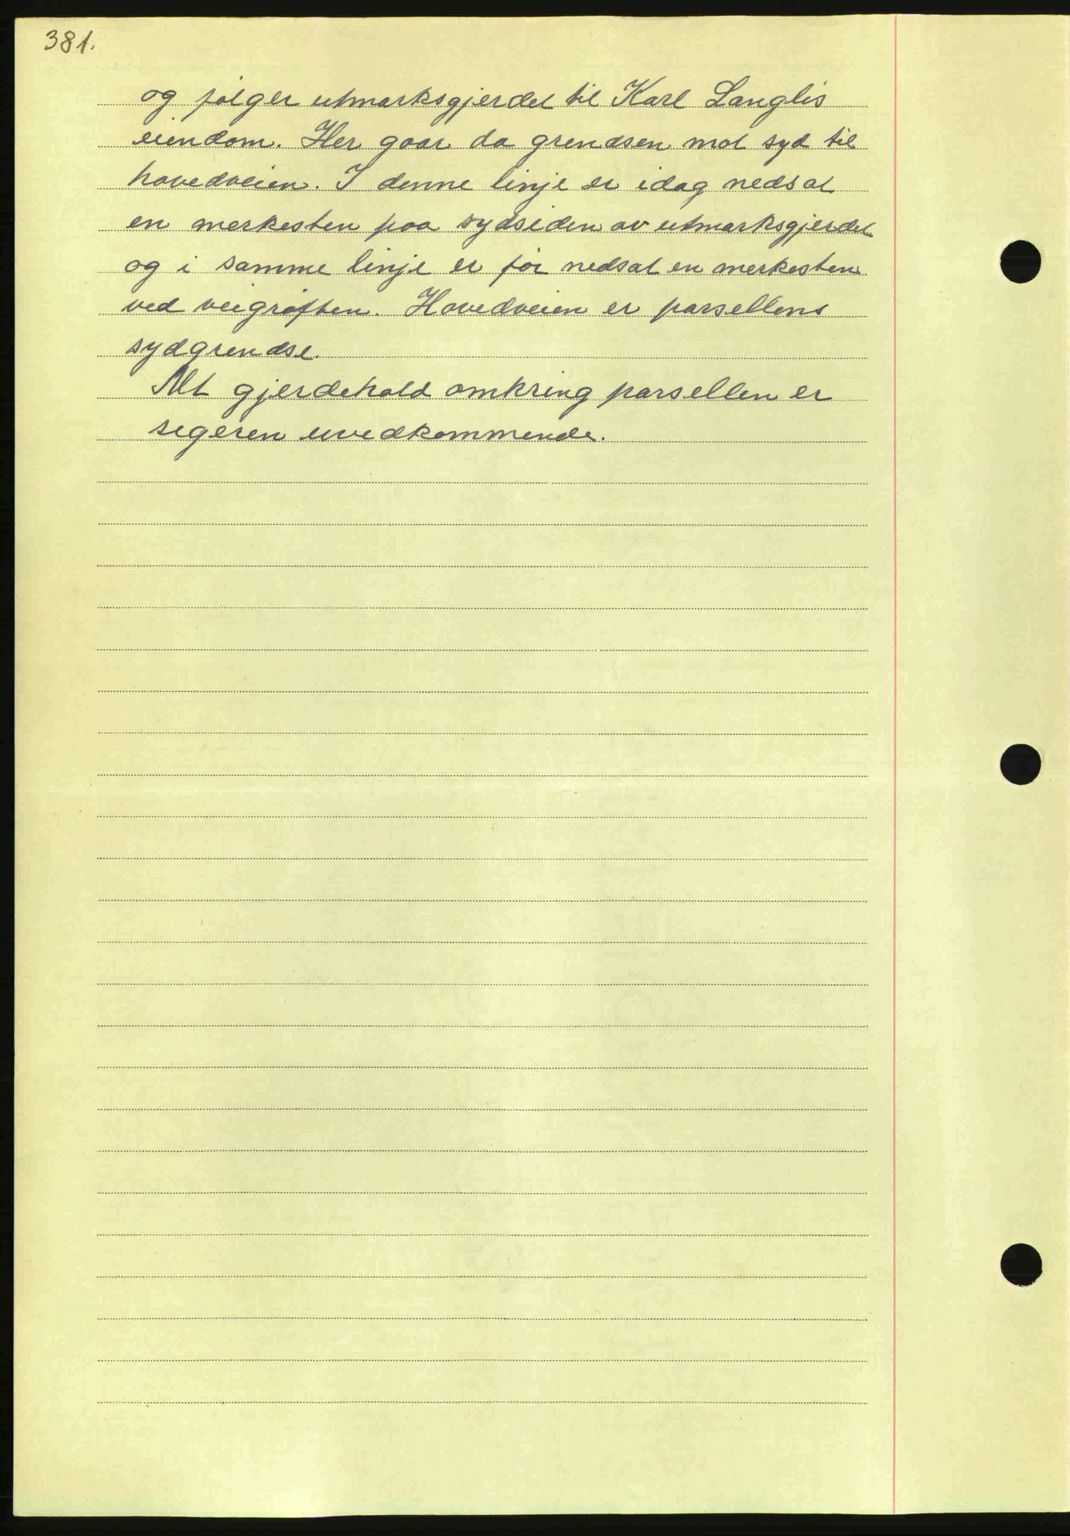 381.
og følger utmarksgjerdet til Karl Langlis
eiendom. Her gaar da grendsen mot syd til
hovedveien. I denne linje er idag nedsat
en merkesten paa sydsiden av utmarksgjerdet
og i samme linje er før nedsat en merkesten
ved veigrøften. Hovedveien er parsellens
sydgrendse.
Alt gjerdehold omkring parsellen er
segeren uvedkommende.